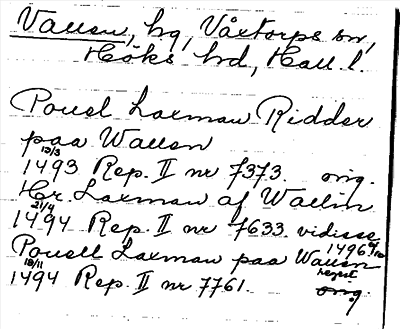 Vallen, hg, Våxtorps sn,
Höks hd, Hall. l.
Pouel Laxman Ridder
paa Wallen
12/3
1493 Rep. II nr 7373. orig.
Hr. Laxman af Wallin
21/4
1494 Rep. II nr 7633. vidisse
1496
Pouell Laxman paa Wallen
18/11 regist
1494 Rep. II nr 7761. orig.